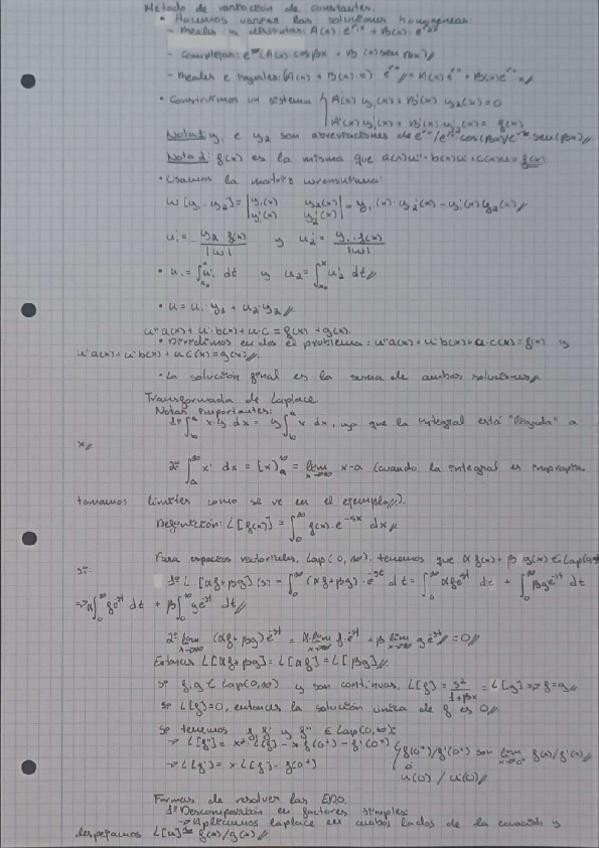 Metodo de variación de constantes.
• Hacemos variar las soluciones homogéneas:
- Reales y distintas: A(x)·e^{r₁x} + B(x)·e^{r₂x}
- Complejas: e^{αx}(A(x)·cos βx + B(x) sen βx)//
- Reales e iguales: (A(x) + B(x)·x) e^{rx}// = A(x) e^{rx} + B(x) e^{rx} x//
• Construimos un sistema { A'(x) y₁(x) + B'(x) y₂(x) = 0
A'(x) y₁'(x) + B'(x) y₂'(x) = f(x)
Nota 1: y₁ e y₂ son abreviaciones de
Nota 2: f(x) es la misma que a(x)u'' + b(x)u' + c(x)u = f(x)
• Usamos la matriz wronskiana:
W[y₁, y₂] = |y₁(x) y₂(x)| = y₁(x)·y₂'(x) - y₁'(x) y₂(x)//
|y₁'(x) y₂'(x)|
u₁' = - y₂ f(x) / |W| y u₂' = y₁·f(x) / |W|
• u₁ = ∫_{x₀}^{x} u₁' dt y u₂ = ∫_{x₀}^{x} u₂' dt//
• u = u₁·y₁ + u₂·y₂//
u'' a(x) + u' b(x) + u·c = f(x) + g(x).
• Dividimos en dos el problema: u'' a(x) + u' b(x) + u·c(x) = f(x) y
u'' a(x) + u' b(x) + u c(x) = g(x)//
• La solución final es la suma de ambas soluciones//
Transformada de Laplace
Notas importantes:
1º ∫_b^a x·y dx = y ∫_b^a x dx, ya que la integral está "ligada" a
x//
2º ∫_a^∞ x' dx = [x]_a^∞ = lim_{x→∞} x-a (cuando la integral es impropia
tomamos límites como se ve en el ejemplo//).
Definición: L[f(x)] = ∫_0^∞ f(x)·e^{-sx} dx//
Para espacios vectoriales, Lap(0,∞), tenemos que α f(x) + β g(x) ∈ Lap(0,∞)
si:
1º L[αf+βg](s) = ∫_0^∞ (αf+βg)·e^{-st} dt = ∫_0^∞ αf e^{-st} dt + ∫_0^∞ βg e^{-st} dt
=> α∫_0^∞ f e^{-st} dt + β∫_0^∞ g e^{-st} dt//
2º lim_{x→∞} (αf+βg) e^{-st} = α·lim_{x→∞} f·e^{-st} + β lim_{x→∞} g e^{-st} = 0//
Entonces L[αf+βg] = L[αf] = L[βg]//
Si f, g ∈ Lap(0,∞) y son continuas, L[f] = s²/(1+βx) = L[g] => f=g//
Si L[f]=0, entonces la solución única de f es 0//
Si tenemos f, f' y f'' ∈ Lap(0,∞):
-> L[f''] = x²·L[f] - x f(0⁺) - f'(0⁺)
f(0⁺)/f'(0⁺) son lim_{x→0⁺} f(x)/f'(x)//
-> L[f'] = x·L[f] - f(0⁺)
o
u(0) / u'(0)//
Formas de resolver las EDO.
1º Descomposición en factores simples:
-> Aplicamos Laplace en ambos lados de la ecuación y
despejamos L[u] = f(x)/g(x)//